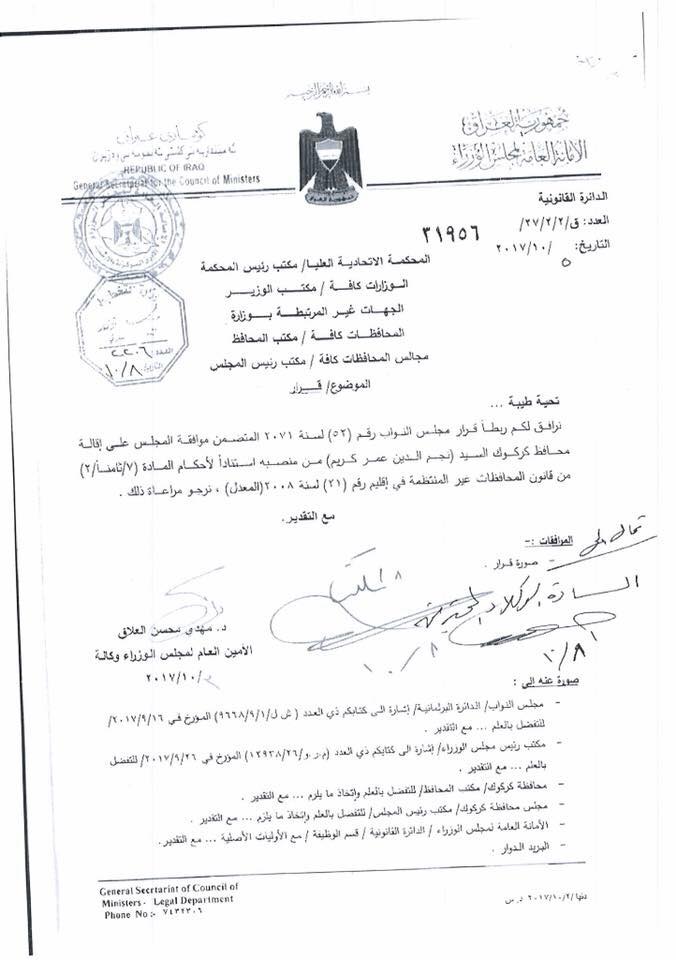 بسم الله الرحمن الرحيم
جمهورية العراق
الامانة العامة لمجلس الوزراء
كۆماری عیراق
REPUBLIC OF IRAQ
General Secretariat for the Council of Ministers
الدائرة القانونية
العدد: ق/٢٧/٢/٢/
٣١٩٥٦
التاريخ: ٥ /٢٠١٧/١٠
المحكمة الاتحادية العليا/ مكتب رئيس المحكمة
الوزارات كافة / مكتب الوزير
الجهات غير المرتبطة بوزارة
المحافظات كافة / مكتب المحافظ
مجالس المحافظات كافة / مكتب رئيس المجلس
الموضوع/ قرار
العدد: ٢٢٠٦
التاريخ: ١٠/٨
تحية طيبة ...
نرافق لكم ربطاً قرار مجلس النواب رقم (٥٢) لسنة ٢٠٧١ المتضمن موافقة المجلس على إقالة
محافظ كركوك السيد (نجم الدين عمر كريم) من منصبه استناداً لأحكام المادة (٧/ثامناً/٢)
من قانون المحافظات غير المنتظمة في إقليم رقم (٢١) لسنة ٢٠٠٨(المعدل) ، نرجو مراعاة ذلك .
مع التقدير.
المرافقات :-
- صورة قرار .
١٠/٨
١٠/٨
د. مهدي محسن العلاق
الأمين العام لمجلس الوزراء وكالة
٢٠١٧/١٠/
صورة عنه الى :
- مجلس النواب/ الدائرة البرلمانية/ إشارة الى كتابكم ذي العدد ( ش ل/٩٦٦٨/٩/١) المؤرخ في ٢٠١٧/٩/١٦/
للتفضل بالعلم ... مع التقدير .
- مكتب رئيس مجلس الوزراء/ إشارة الى كتابكم ذي العدد (م.ر.و/١٣٩٣٨/٢٦) المؤرخ في ٢٠١٧/٩/٢٦/ للتفضل
بالعلم ... مع التقدير .
- محافظة كركوك/ مكتب المحافظ/ للتفضل بالعلم وإتخاذ ما يلزم ... مع التقدير .
- مجلس محافظة كركوك/ مكتب رئيس المجلس/ للتفضل بالعلم وإتخاذ ما يلزم ... مع التقدير .
- الأمانة العامة لمجلس الوزراء / الدائرة القانونية / قسم الوظيفة / مع الأوليات الأصلية ... مع التقدير.
- البريد الدوار .
General Secrtariat of Council of
Ministers- Legal Department
Phone No:- ٧٤٣٢٣٠٦
٢٠١٧/١٠/٢